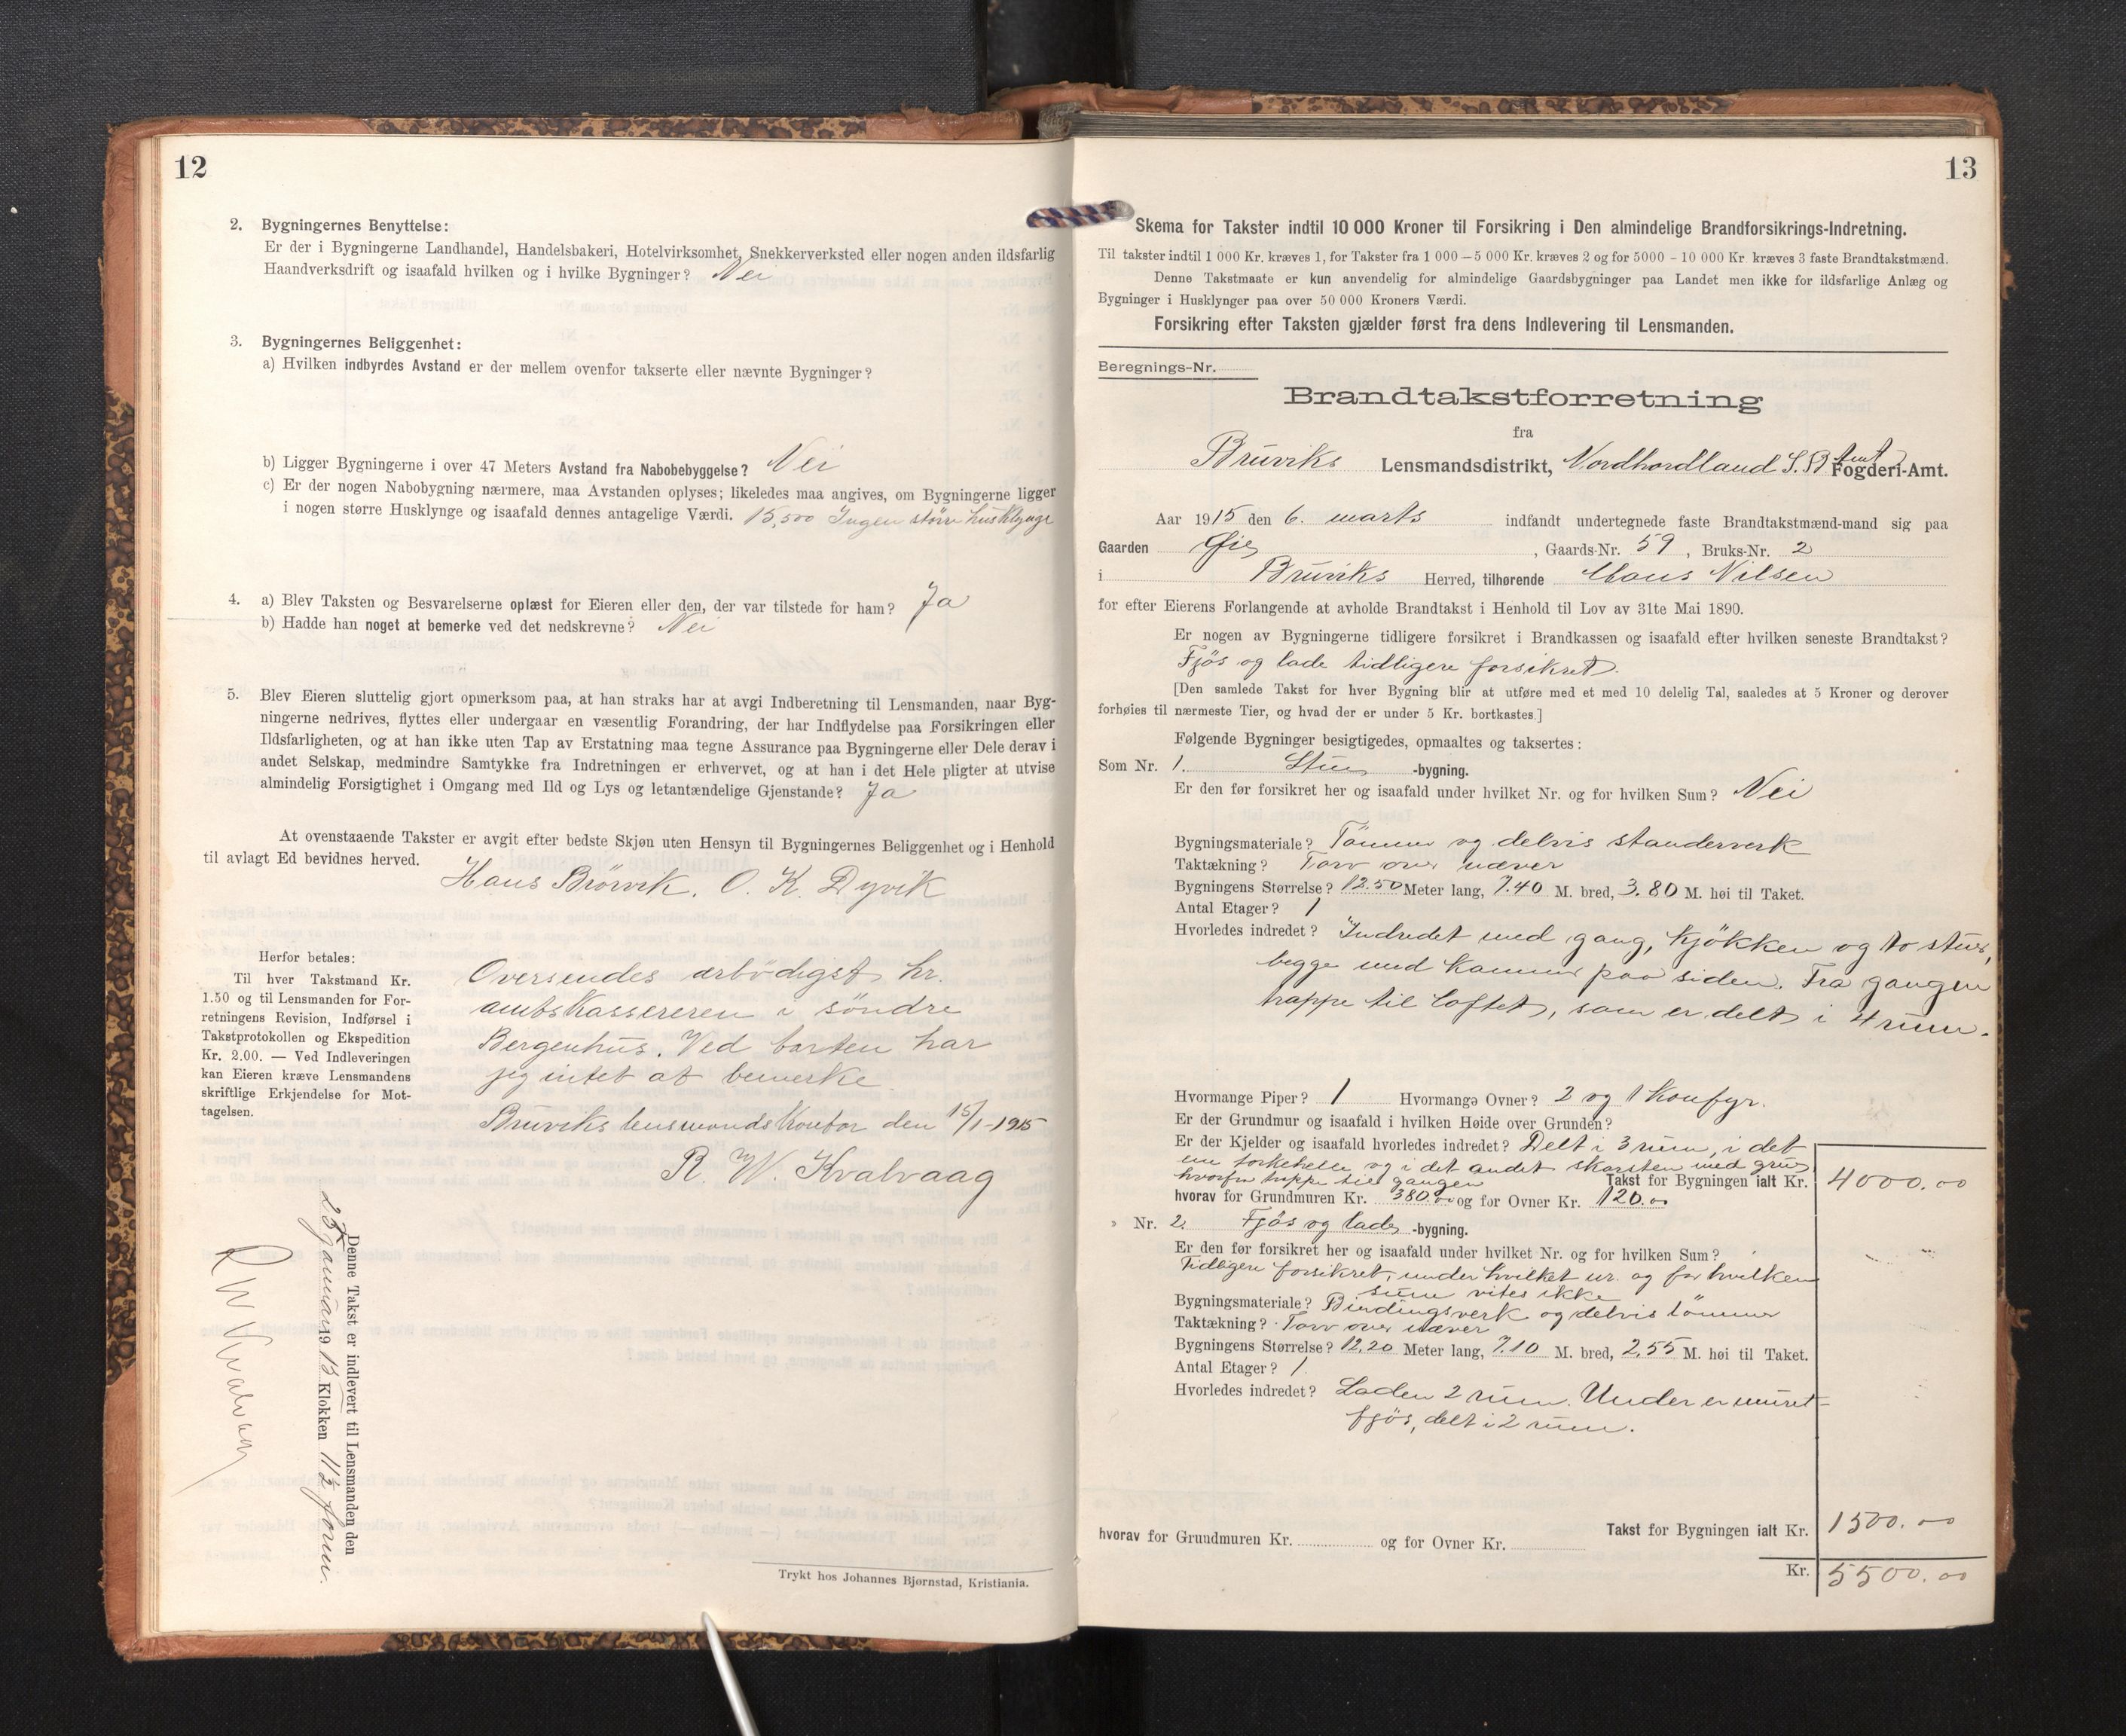 12
2. Bygningernes Benyttelse:
Er der i Bygningerne Landhandel, Handelsbakeri, Hotelvirksomhet, Snekkerverksted eller nogen anden ildsfarlig
Haandverksdrift og isaafald hvilken og i hvilke Bygninger? Nei
3. Bygningernes Beliggenhet:
a) Hvilken indbyrdes Avstand er der mellem ovenfor takserte eller nævnte Bygninger?
b) Ligger Bygningerne i over 47 Meters Avstand fra Nabobebyggelse? Nei
c) Er der nogen Nabobygning nærmere, maa Avstanden oplyses; likeledes maa angives, om Bygningerne ligger
i nogen større Husklynge og isaafald dennes antagelige Værdi. 15,500 Ingen större husklynge
4. a) Blev Taksten og Besvarelserne oplæst for Eieren eller den, der var tilstede for ham? Ja
b) Hadde han noget at bemerke ved det nedskrevne? Nei
5. Blev Eieren sluttelig gjort opmerksom paa, at han straks har at avgi Indberetning til Lensmanden, naar Byg-
ningerne nedrives, flyttes eller undergaar en væsentlig Forandring, der har Indflydelse paa Forsikringen eller
Ildsfarligheten, og at han ikke uten Tap av Erstatning maa tegne Assurance paa Bygningerne eller Dele derav i
andet Selskap, medmindre Samtykke fra Indretningen er erhvervet, og at han i det Hele pligter at utvise
almindelig Forsigtighet i Omgang med Ild og Lys og letantændelige Gjenstande? Ja
At ovenstaaende Takster er avgit efter bedste Skjøn uten Hensyn til Bygningernes Beliggenhet og i Henhold
til avlagt Ed bevidnes herved.
Hans Brørvik. O. K. Dyvik
Herfor betales:
Til hver Takstmand Kr.
1.50 og til Lensmanden for For-
retningens Revision, Indførsel i
Takstprotokollen og Ekspedition
Kr. 2.00. — Ved Indleveringen
kan Eieren kræve Lensmandens
skriftlige Erkjendelse for Mot-
tagelsen.
Oversendes ærbödigst hr.
amtskassereren i söndre
Bergenhus. Ved taxten har
jeg intet at bemerke
Bruviks lensmandskontor den 15/1-1915
R. W. Kvalvaag
Denne Takst er indlevert til Lensmanden den
25 januar 1913 Klokken 11½ form.
R W Kvalvaag
Trykt hos Johannes Bjørnstad, Kristiania.
13
Skema for Takster indtil 10 000 Kroner til Forsikring i Den almindelige Brandforsikrings-Indretning.
Til takster indtil 1 000 Kr. kræves 1, for Takster fra 1 000 — 5 000 Kr. kræves 2 og for 5000 - 10 000 Kr kræves 3 faste Brandtakstmænd.
Denne Takstmaate er kun anvendelig for almindelige Gaardsbygninger paa Landet men ikke for ildsfarlige Anlæg og
Bygninger i Husklynger paa over 50 000 Kroners Værdi.
Forsikring efter Taksten gjælder først fra dens Indlevering til Lensmanden.
Beregnings-Nr.
Brandtakstforretning
fra
Bruviks Lensmandsdistrikt, Nordhordland S. B. Amt Fogderi-Amt.
Aar 1915 den 6. marts indfandt undertegnede faste Brandtakstmænd-mand sig paa
Gaarden Øie, Gaards-Nr. 59, Bruks-Nr. 2
i Bruviks Herred, tilhørende Mons Nilsen
for efter Eierens Forlangende at avholde Brandtakst i Henhold til Lov av 31te Mai 1890.
Er nogen av Bygningerne tidligere forsikret i Brandkassen og isaafald efter hvilken seneste Brandtakst?
Fjös og lade tidligere forsikret.
[Den samlede Takst for hver Bygning blir at utføre med et med 10 delelig Tal, saaledes at 5 Kroner og derover
forhøies til nærmeste Tier, og hvad der er under 5 Kr. bortkastes.]
Følgende Bygninger besigtigedes, opmaaltes og taksertes:
Som Nr. 1. Stue -bygning.
Er den før forsikret her og isaafald under hvilket Nr. og for hvilken Sum? Nei
Bygningsmateriale? Tömmer og delvis standerverk
Taktækning? Torv over næver
Bygningens Størrelse? 12.50 Meter lang, 7.40 M. bred, 3.80 M. høi til Taket.
Antal Etager? 1
Hvorledes indredet? Indredet med gang, kjökken og to stuer,
begge med kammer paa siden. Fra gangen
trappe til loftet, som er delt i 4 rum.
Hvormange Piper? 1 Hvormange Ovner? 2 og 1 komfyr.
Er der Grundmur og isaafald i hvilken Høide over Grunden?
Er der Kjelder og isaafald hvorledes indredet? Delt i 3 rum, i det
ene torkehelle og i det andet skorsten med grue
hvorfra trappe til gangen Takst for Bygningen ialt Kr. 4000.00
hvorav for Grundmuren Kr. 380.00 og for Ovner Kr. 120.00
» Nr. 2. Fjös og lade -bygning.
Er den før forsikret her og isaafald under hvilket Nr. og for hvilken Sum?
Tidligere forsikret, under hvilket nr. og for hvilken
sum vites ikke
Bygningsmateriale? Bindingsverk og delvis tömmer
Taktækning? Torv over næver
Bygningens Størrelse? 12.20 Meter lang, 7.10 M. bred, 2.55 M. høi til Taket.
Antal Etager? 1
Hvorledes indredet? Laden 2 rum. Under er muret
fjös, delt i 2 rum.
Takst for Bygningen ialt Kr. 1500.00
hvorav for Grundmuren Kr. og for Ovner Kr.
Kr. 5500.00